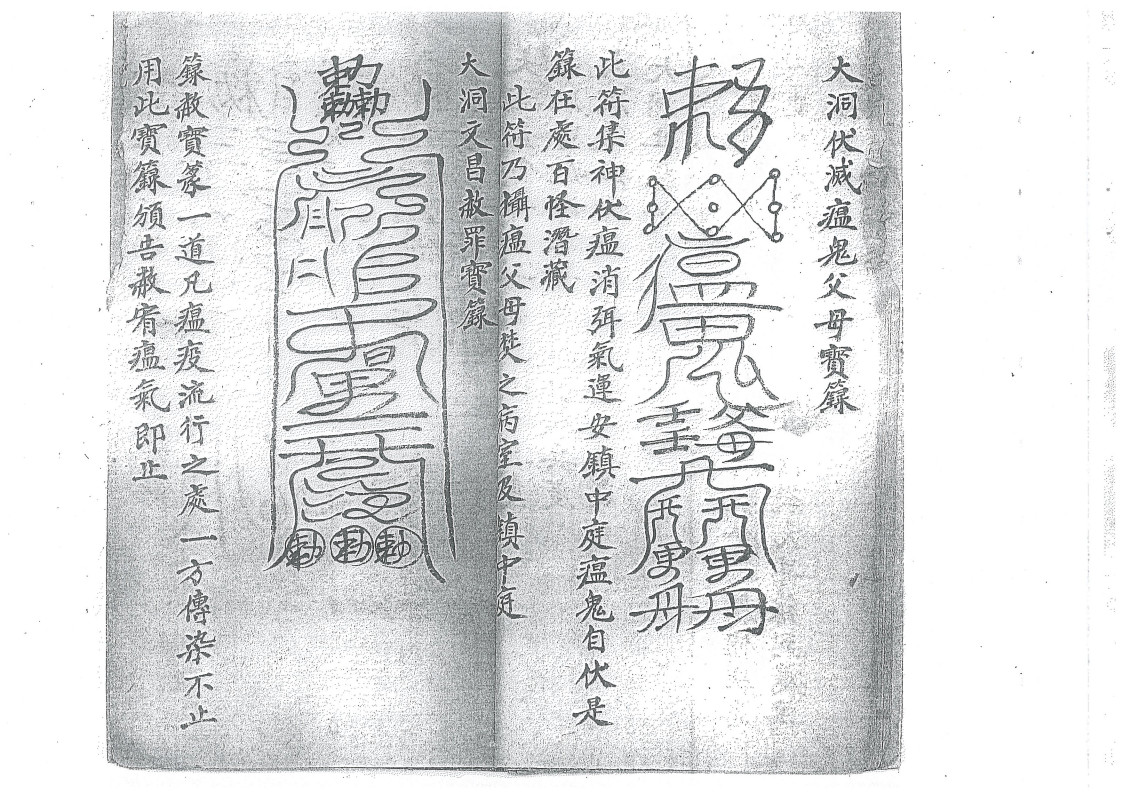 大洞伏滅瘟鬼父母寶籙
勅
此符集神伏瘟消弭氣運安鎮中庭瘟鬼自伏是
籙在處百怪潛藏
此符乃攝瘟父母焚之病室及鎮中庭
大洞文昌赦罪寶籙
勅勅勅
勅勅勅
籙赦寶篆一道凡瘟疫流行之處一方傳染不止
用此寶籙頒告赦宥瘟氣即止